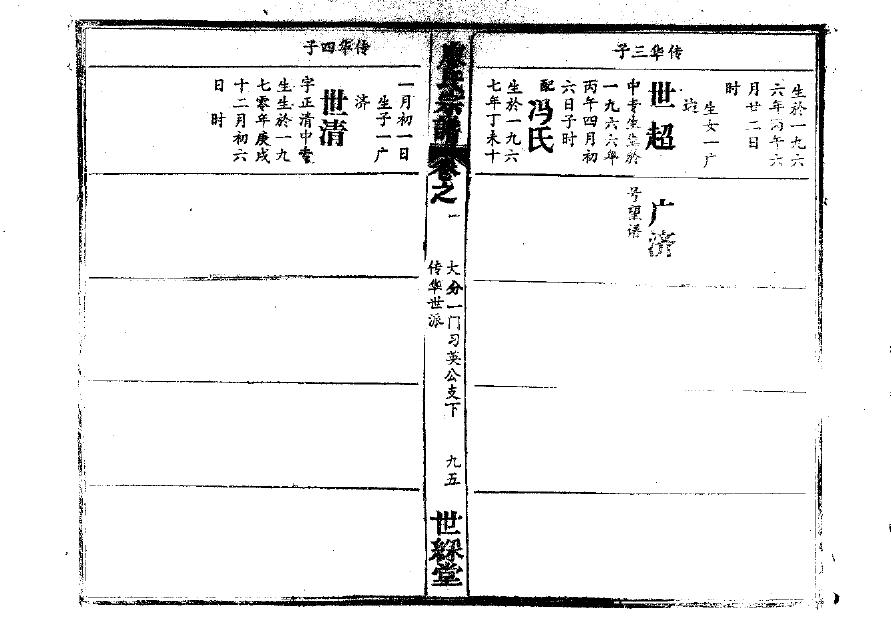 传华三子
生於一九六
六年丙午六
月廿二日
时
生女一广
世超
中专生生於
一九六六年
丙午四月初
六日子时
配冯氏
生於一九六
七年丁未十
广济
号望溪
氏宗谱卷之一
大分一门习英公支下
传华世派
九五
世綵堂
传华四子
一月初一日
生子一广
济
世清
字正清中专
生生於一九
七零年庚戌
十二月初六
日时